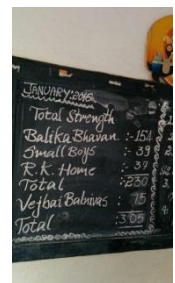 JANUARY:2015
Total Strength
Balika Bhavan :-154
Small Boys :- 39
R.K. Home :- 37
Total :230
Vejbai Balnivas : 75
Total :305